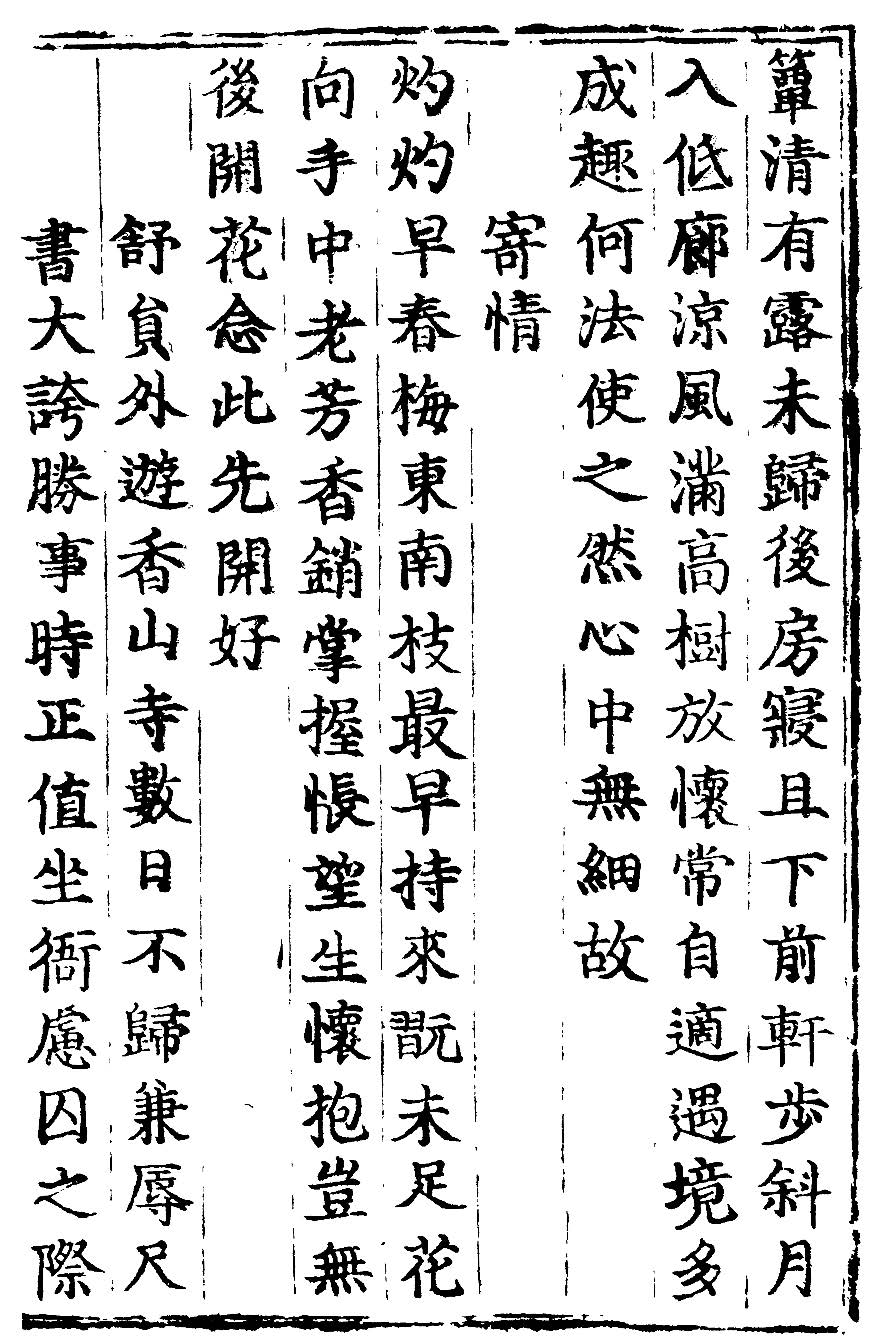 簟清有露未歸後房寢且下前軒步斜月
入低廊涼風滿高樹放懷常自適遇境多
成趣何法使之然心中無細故
寄情
灼灼早春梅東南枝最早持來翫未足花
向手中老芳香銷掌握悵望生懷抱豈無
後開花念此先開好
舒員外遊香山寺數日不歸兼辱尺
書大誇勝事時正值坐衙慮囚之際